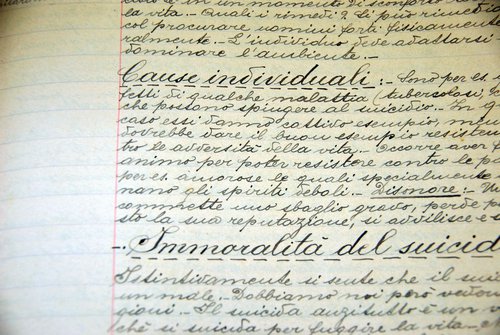 la vita. - Quali i rimedi? Si può rime
col procurare uomini forti fisicamente
ralmente. - L'individuo deve adattarsi
dominare l'ambiente. -
Cause individuali: - Sono per es.
fetti di qualche malattia (tubercolosi,
che possono spingere al suicidio. In q
caso essi danno cattivo esempio, men
dovrebbe dare il buon esempio resisten
tro le avversità della vita. - Occorre aver f
animo per poter resistere contro le p
per es. amorose le quali specialmente
nano gli spiriti deboli. - Disonore: - Un
commette uno sbaglio grave, perde p
sto la sua reputazione, si avvilisce e s
-. Immoralità del suicid
Istintivamente si sente che il sui
un male. - Dobbiamo noi però veder
gioni. - Il suicida anzitutto è un
chè si suicida per fuggire la vita. -